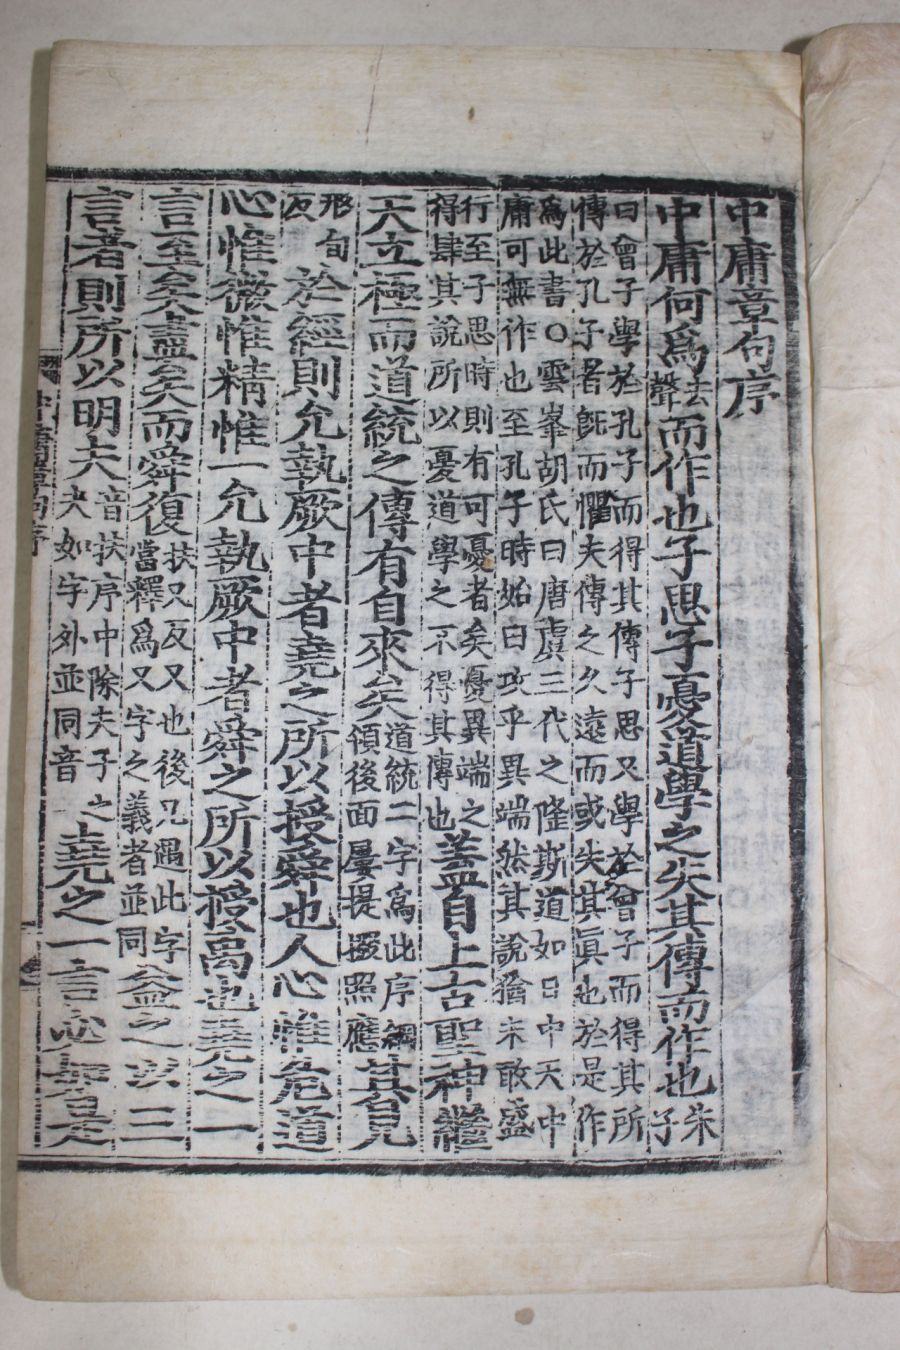 中庸章句序
中庸何爲去聲而作也子思子憂道學之失其傳而作也朱子
曰曾子學於孔子而得其傳子思又學於曾子而得其所
傳於孔子者旣而懼夫傳之久遠而或失其眞也於是作
爲此書○雲峯胡氏曰唐虞三代之隆斯道如日中天中
庸可無作也至孔子時始曰攻乎異端然其說猶未敢盛
行至子思時則有可憂者矣憂異端之
得肆其說所以憂道學之不得其傳也
蓋自上古聖神繼
天立極而道統之傳有自來矣
道統二字爲此序綱
領後面屢提掇照應
其見
形甸
反
於經則允執厥中者堯之所以授舜也人心惟危道
心惟微惟精惟一允執厥中者舜之所以授禹也堯之一
言至矣盡矣而舜復
扶又反又也後凡遇此字
當釋爲又字之義者並同
益之以三
言者則所以明夫
音扶序中除夫子之
夫如字外並同音
堯之一言必如是
中庸章句序